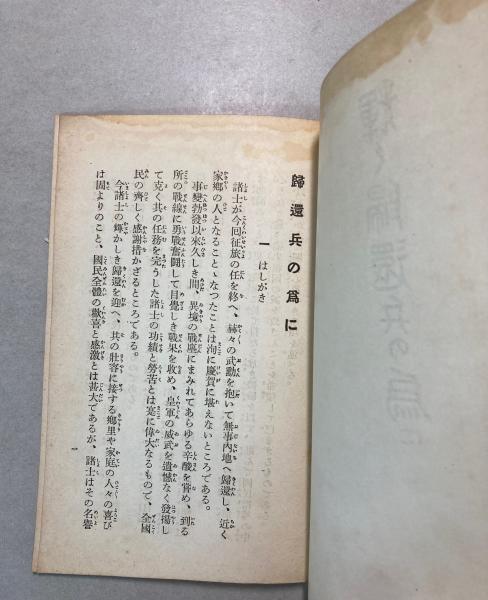 歸還兵の爲に
一　はしがき
諸士が今回征旅の任を終へ、赫々の武勳を抱いて無事內地へ歸還し、近く
家鄕の人となることゝなつたことは洵に慶賀に堪えないところである。
事變勃發以來久しき間、異境の戰塵にまみれてあらゆる辛酸を嘗め、到る
所の戰線に勇戰奮鬪して目覺しき戰果を收め、皇軍の威武を遺憾なく發揚し
て克く其の任務を完うした諸士の功績と勞苦とは寔に偉大なるもので、全國
民の齊しく感謝措かざるところである。
今諸士の輝かしき歸還を迎へ、其の壯容に接する鄕里や家庭の人々の喜び
は固よりのこと、國民全體の歡喜と感激とは甚大であるが、諸士はその名譽
一